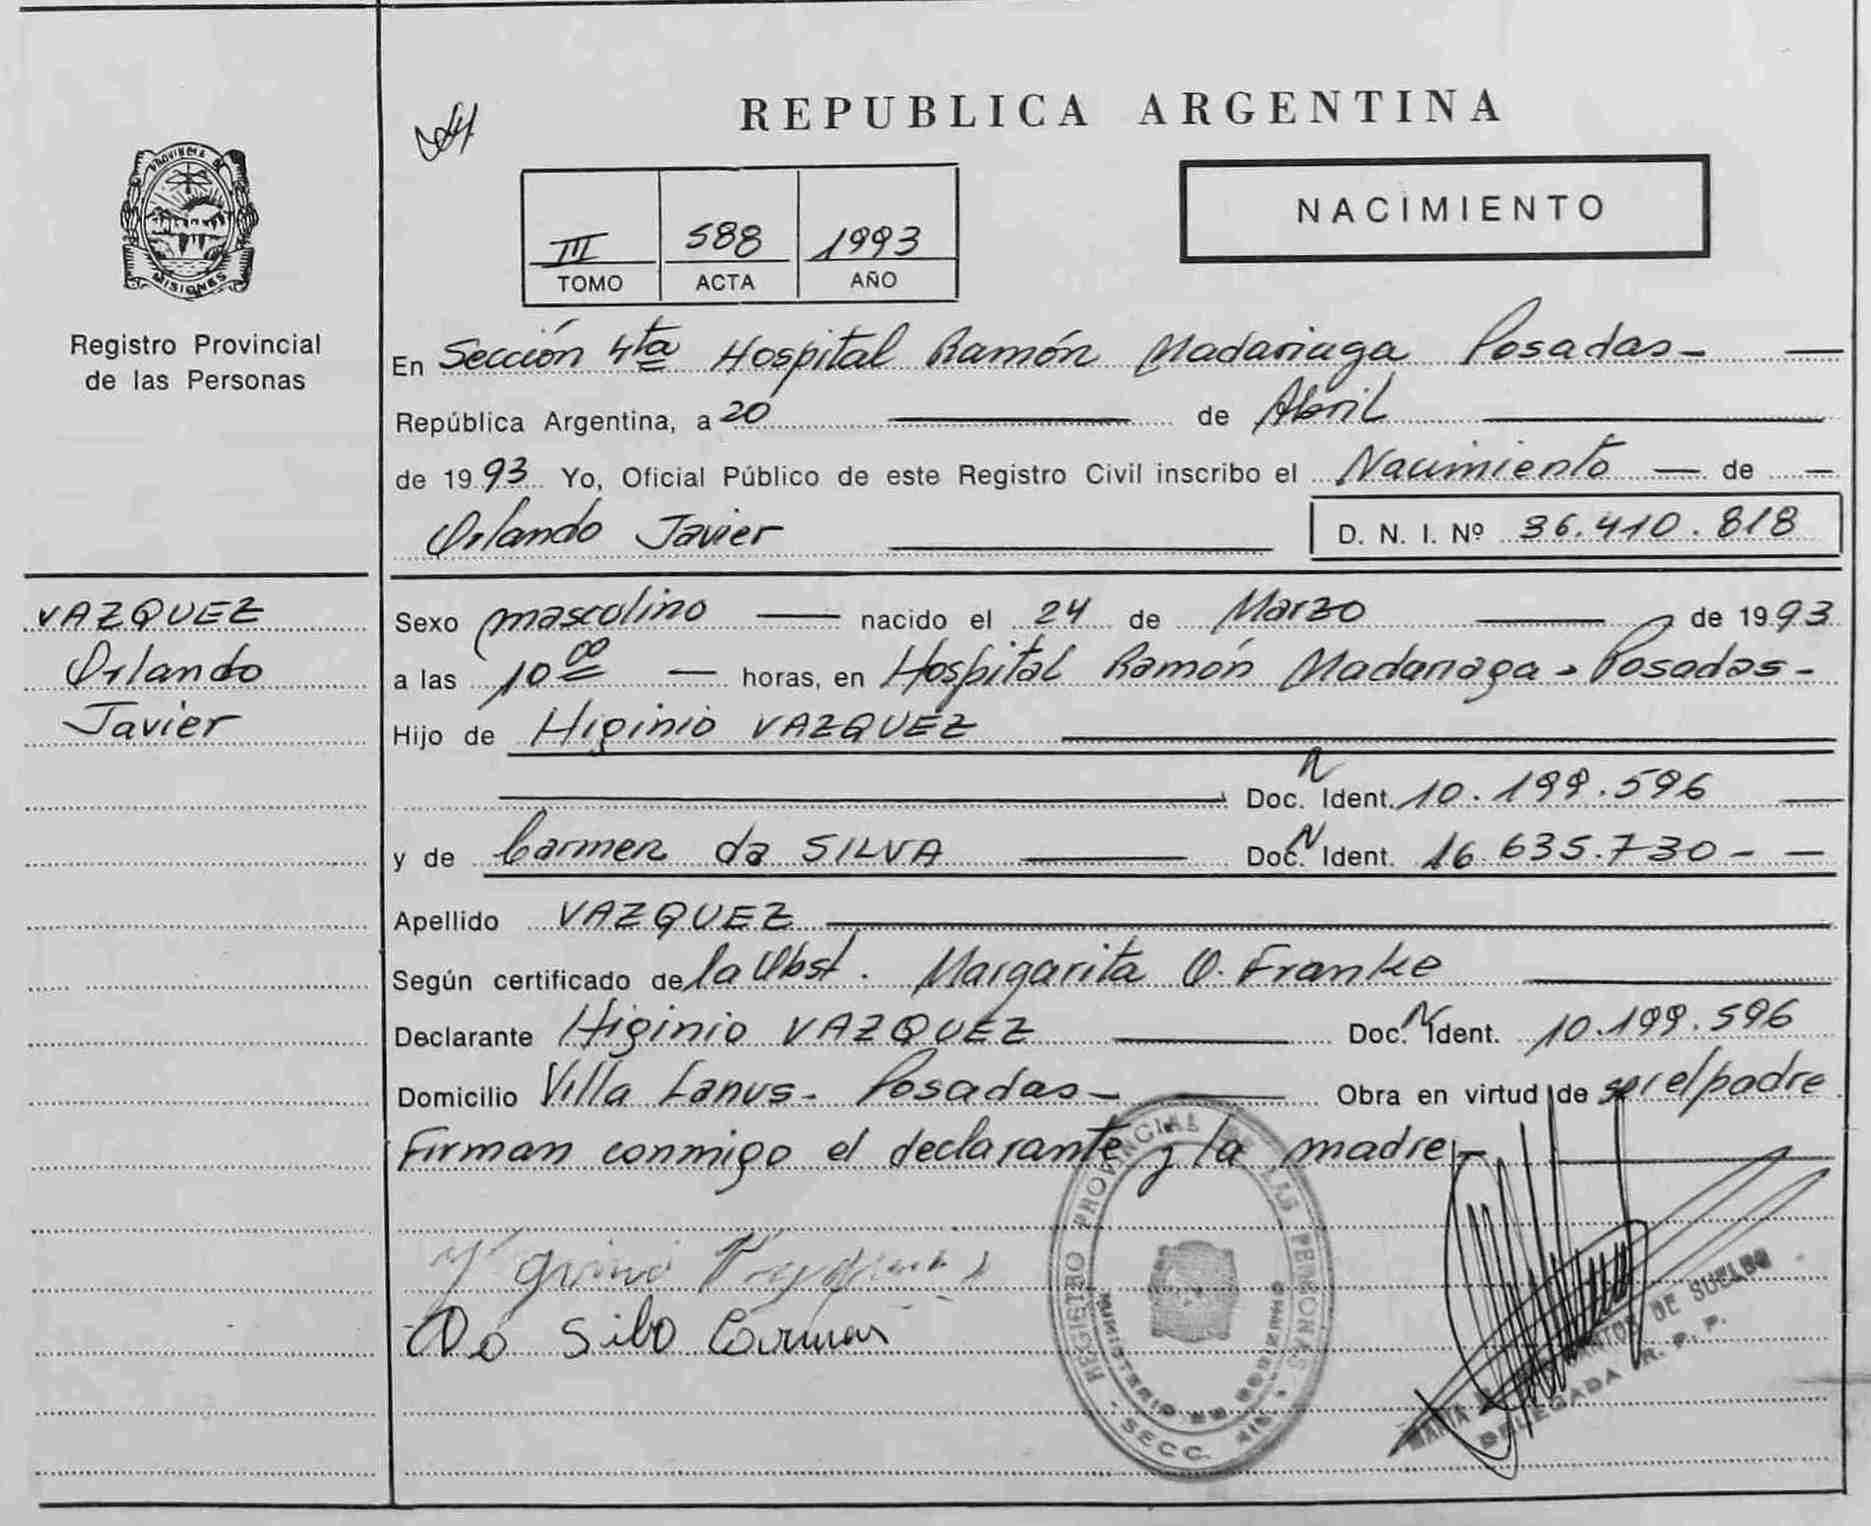 REPUBLICA ARGENTINA
PROVINCIA DE
MISIONES
Registro Provincial
de las Personas
III 588 1993
TOMO ACTA AÑO
NACIMIENTO
En Sección 4ta Hospital Ramón Madariaga Posadas -
República Argentina, a 20 de Abril
de 1993 Yo, Oficial Público de este Registro Civil inscribo el Nacimiento de
Orlando Javier
D. N. I. Nº 36.410.818
VAZQUEZ
Orlando
Javier
Sexo masculino nacido el 24 de Marzo de 1993
a las 10 00 horas, en Hospital Ramón Madariaga - Posadas -
Hijo de Higinio VAZQUEZ
Doc. N Ident. 10.199.596
y de Carmen da SILVA Doc. N Ident. 16.635.730 -
Apellido VAZQUEZ
Según certificado de la Obst. Margarita O. Franke
Declarante Higinio VAZQUEZ Doc. N Ident. 10.199.596
Domicilio Villa Lanus - Posadas - Obra en virtud de ser el padre
Firman conmigo el declarante y la madre -
Da Silva Carmen
REGISTRO PROVINCIAL DE LAS PERSONAS
MINISTERIO DE GOBIERNO
SECC. 4ta
MARIA DE SUELDO
DELEGADA R. P. P.